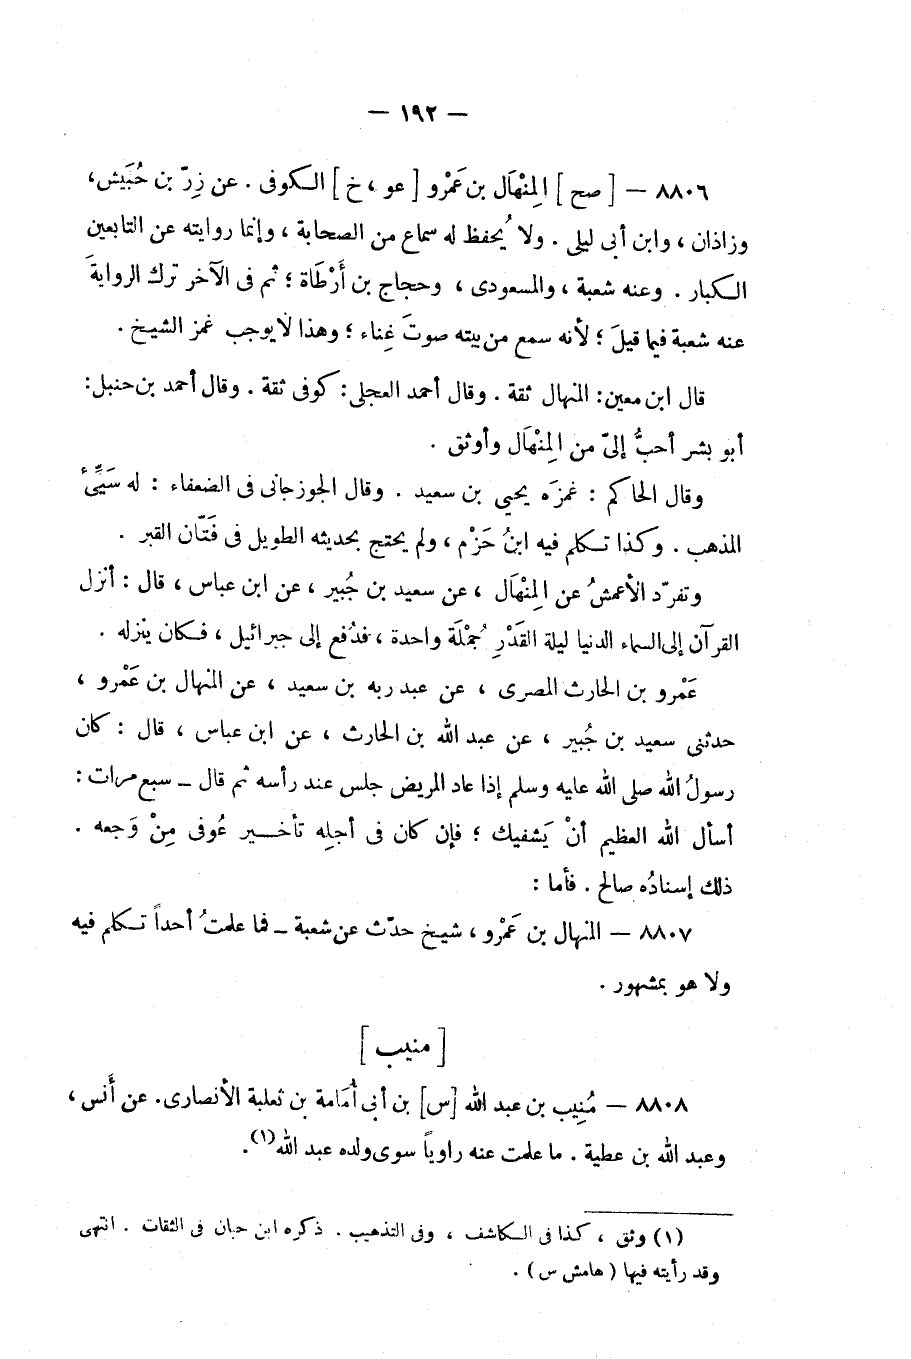 — ١٩٢ —
٨٨٠٦ — [ صح ] المِنْهَال بن عَمْرو [ عو ، خ ] الكوفى . عن زِرّ بن حُبَيش،
وزاذان ، وابن أبى ليلى . ولا يُحفظ له سماع من الصحابة ، وإنما روايته عن التابعين
الكبار . وعنه شعبة ، والمسعودى ، وحجاج بن أَرْطَاة ؛ ثم فى الآخر ترك الروايةَ
عنه شعبة فيما قيلَ ؛ لأنه سمع من بيته صوتَ غِناء ؛ وهذا لا يوجب غمز الشيخ .
قال ابن معين: المنهال ثقة . وقال أحمد العجلى: كوفى ثقة . وقال أحمد بن حنبل:
أبو بشر أحبُّ إلىّ من المِنْهَال وأوثق .
وقال الحاكم : غمزَه يحيى بن سعيد . وقال الجوزجانى فى الضعفاء : له سَيِّئُ
المذهب . وكذا تكلم فيه ابنُ حَزْم ، ولم يحتج بحديثه الطويل فى فَتّان القبر .
وتفرّد الأعمشُ عن المِنْهَال ، عن سعيد بن جُبير ، عن ابن عباس ، قال : أنزل
القرآن إلى السماء الدنيا ليلة القَدْرِ جُمْلَة واحدة ، فدُفع إلى جبرائيل ، فكان ينْزله .
عَمْرو بن الحارث المصرى ، عن عبد ربه بن سعيد ، عن المنهال بن عَمْرو ،
حدثنى سعيد بن جُبير ، عن عبد الله بن الحارث ، عن ابن عباس ، قال : كان
رسولُ الله صلى الله عليه وسلم إذا عاد المريض جلس عند رأسه ثم قال ــ سبع مرات :
أسأل الله العظيم أنْ يَشفيك ؛ فإن كان فى أجلِه تأخير عُوفى مِنْ وَجعه .
ذلك إسنادُه صالح . فأما :
٨٨٠٧ — المنهال بن عَمْرو ، شيخ حدّث عن شعبة ــ فما علمتُ أحداً تكلم فيه
ولا هو بمشهور .
[ منيب ]
٨٨٠٨ — مُنِيب بن عبد الله [س] بن أبى أُمَامة بن ثعلبة الأنصارى. عن أَنس ،
وعبد الله بن عطية . ما علمت عنه راوياً سوى ولده عبد الله(١).
(١) وثق ، كذا فى الكاشف ، وفى التذهيب . ذكره ابن حبان فى الثقات . انتهى
وقد رأيته فيها ( هامش س ) .